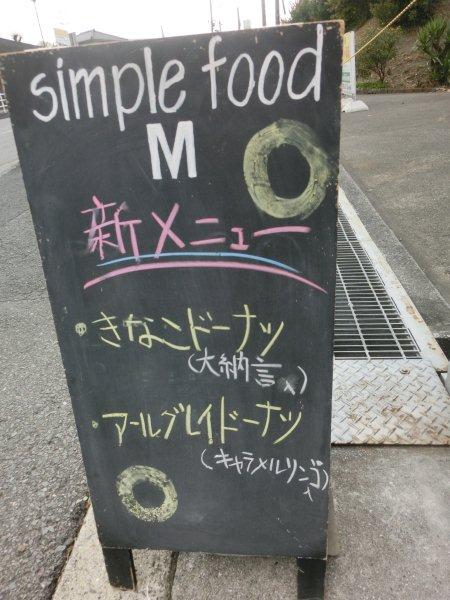 simple food
M
新メニュー
・きなこドーナツ
(大納言入)
・アールグレイドーナツ
(キャラメルリンゴ入)